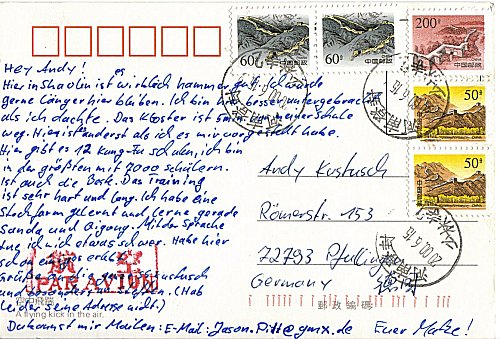 60分 中国邮政
60分 中国邮政
200分 中国邮政
50分
50分
Hey Andy!
Hier in Shaolin ist es wirklich hammer gut. Ich würde
gerne länger hier bleiben. Ich bin hier besser untergebracht
als ich dachte. Das Kloster ist 5min von meiner Schule
weg. Hier ist anders als ich es mir vorgestellt habe.
Hier gibt es 12 Kung-Fu schulen, ich bin
in der größten mit 7000 schülern.
Ist auch die Beste. Das Training
ist sehr hart und lang. Ich habe eine
Stockform gelernt und lerne gerade
Sanda und Qigong. Mit der Sprache
tue ich mich etwas schwer. Habe hier
schon
Grüße
leider seine Adresse nicht.)
Du kannst mir Mailen: E-Mail: Jason.Pitt@gmx.de Euer Matze!
Andy Kustusch
Römerstr. 153
72793 Pfullingen
Germany
航空
PAR AVION
A flying kick in the air.
邮政编码